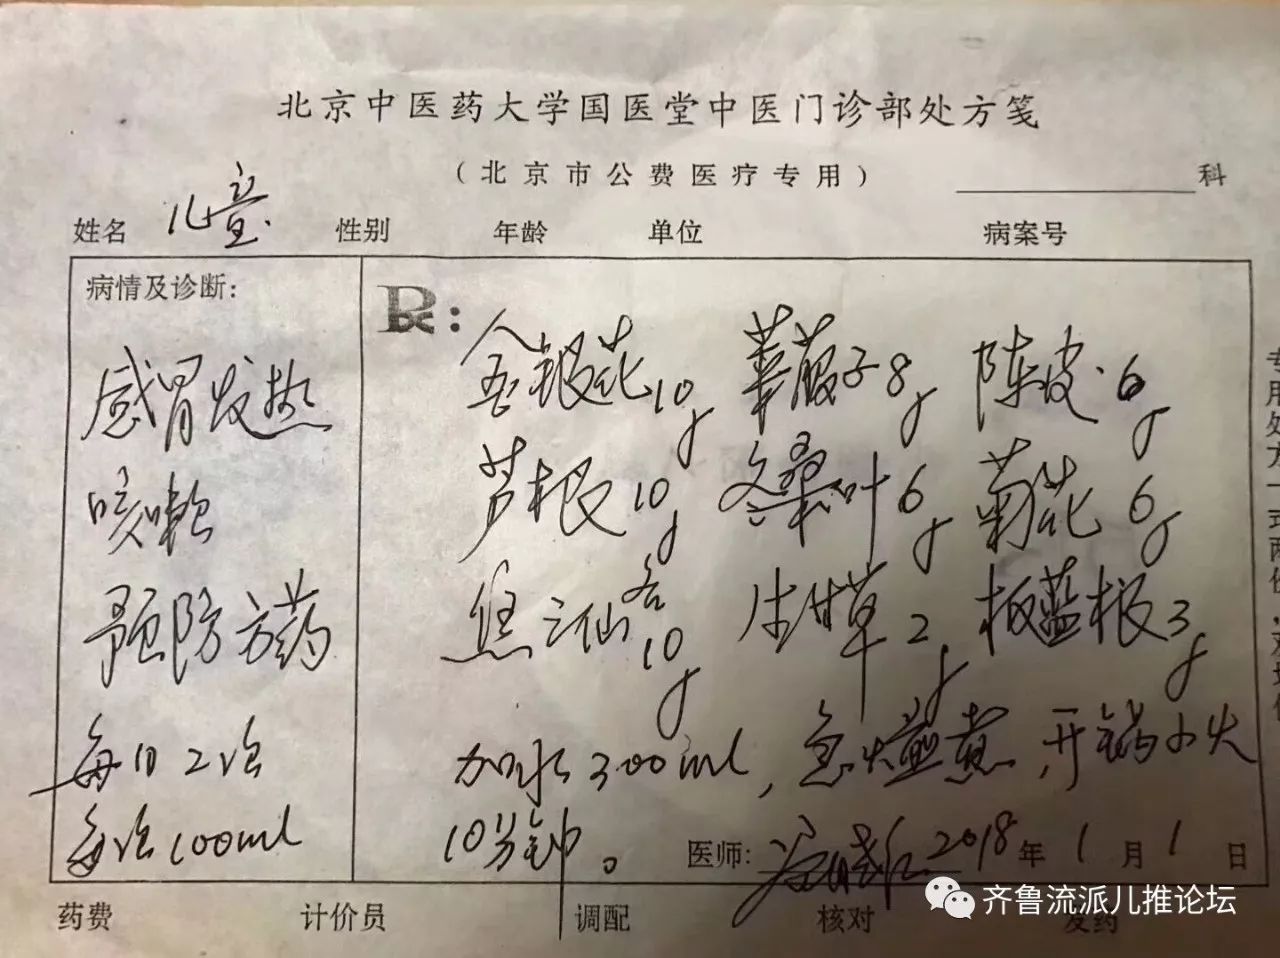 北京中医药大学国医堂中医门诊部处方笺
（北京市公费医疗专用）
科
姓名 儿童 性别 年龄 单位 病案号
病情及诊断：
感冒发热
咳嗽
预防方药
每日2次
每次100ml
R:
金银花10g 莱菔子8g 陈皮6g
芦根10g 冬桑叶6g 菊花6g
焦三仙各10g 生甘草2g 板蓝根3g
加水300ml，急火煎煮，开锅小火
10分钟。
医师： 2018年1月1日
药费 计价员 调配 核对 发药
专用处方一式两份，
齐鲁流派儿推论坛